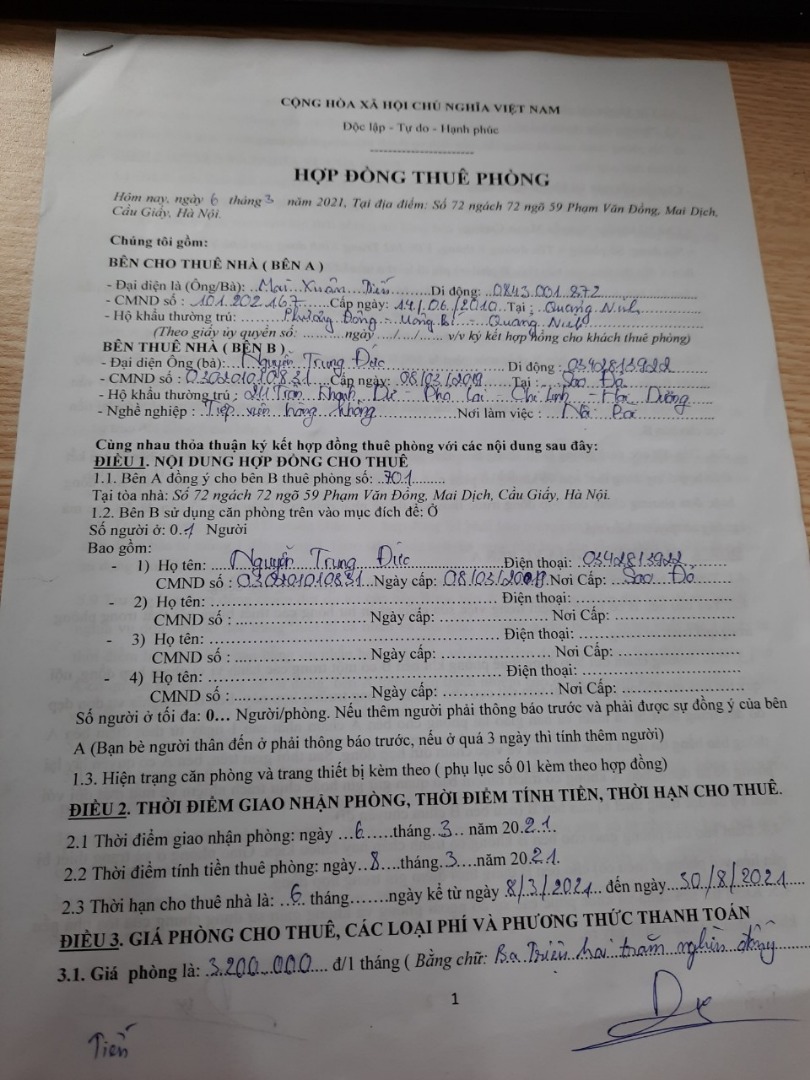 CỘNG HÒA XÃ HỘI CHỦ NGHĨA VIỆT NAM
Độc lập - Tự do - Hạnh phúc
HỢP ĐỒNG THUÊ PHÒNG
Hôm nay, ngày 6 tháng 3 năm 2021, Tại địa điểm: Số 72 ngách 72 ngõ 59 Phạm Văn Đồng, Mai Dịch,
Cầu Giấy, Hà Nội.
Chúng tôi gồm:
BÊN CHO THUÊ NHÀ ( BÊN A )
- Đại diện là (Ông/Bà): Mai Xuân Tiến Di động: 0843.001.872
- CMND số : 101.202.167 Cấp ngày: 14/.06./2010 Tại : Quảng Ninh
- Hộ khẩu thường trú: Phương Đông - Uông Bí - Quảng Ninh
(Theo giấy ủy quyền số: ........... ngày ..../..../...... v/v ký kết hợp đồng cho khách thuê phòng)
BÊN THUÊ NHÀ ( BÊN B )
- Đại diện Ông (bà): Nguyễn Trung Đức Di động : 0342813922
- CMND số : Cấp ngày: 08/03/ Tại : Sao Đỏ
- Hộ khẩu thường trú : Trần Khánh Dư - - Chí Linh - Hải Dương
- Nghề nghiệp : Tiếp viên hàng không Nơi làm việc : Nội Bài
Cùng nhau thỏa thuận ký kết hợp đồng thuê phòng với các nội dung sau đây:
ĐIỀU 1. NỘI DUNG HỢP ĐỒNG CHO THUÊ
1.1. Bên A đồng ý cho bên B thuê phòng số: 701
Tại tòa nhà: Số 72 ngách 72 ngõ 59 Phạm Văn Đồng, Mai Dịch, Cầu Giấy, Hà Nội.
1.2. Bên B sử dụng căn phòng trên vào mục đích để: Ở
Số người ở: 0.1 Người
Bao gồm:
- 1) Họ tên: Nguyễn Trung Đức Điện thoại: 0342813922
CMND số : Ngày cấp: 08/03/ Nơi Cấp: Sao Đỏ
- 2) Họ tên: .......... Điện thoại: ..........
CMND số : .......... Ngày cấp: .......... Nơi Cấp: ..........
- 3) Họ tên: .......... Điện thoại: ..........
CMND số : .......... Ngày cấp: .......... Nơi Cấp: ..........
- 4) Họ tên: .......... Điện thoại: ..........
CMND số : .......... Ngày cấp: .......... Nơi Cấp: ..........
Số người ở tối đa: 0... Người/phòng. Nếu thêm người phải thông báo trước và phải được sự đồng ý của bên
A (Bạn bè người thân đến ở phải thông báo trước, nếu ở quá 3 ngày thì tính thêm người)
1.3. Hiện trạng căn phòng và trang thiết bị kèm theo ( phụ lục số 01 kèm theo hợp đồng)
ĐIỀU 2. THỜI ĐIỂM GIAO NHẬN PHÒNG, THỜI ĐIỂM TÍNH TIỀN, THỜI HẠN CHO THUÊ.
2.1 Thời điểm giao nhận phòng: ngày ...6......tháng.3.. năm 20.21.
2.2 Thời điểm tính tiền thuê phòng: ngày..8....tháng.3....năm 20.21.
2.3 Thời hạn cho thuê nhà là: ..6. tháng.......ngày kể từ ngày 8/3/2021.. đến ngày...30/8/2021
ĐIỀU 3. GIÁ PHÒNG CHO THUÊ, CÁC LOẠI PHÍ VÀ PHƯƠNG THỨC THANH TOÁN
3.1. Giá phòng là: 3.200.000.... đ/1 tháng ( Bằng chữ: Ba Triệu hai trăm nghìn đồng
1
Tiến